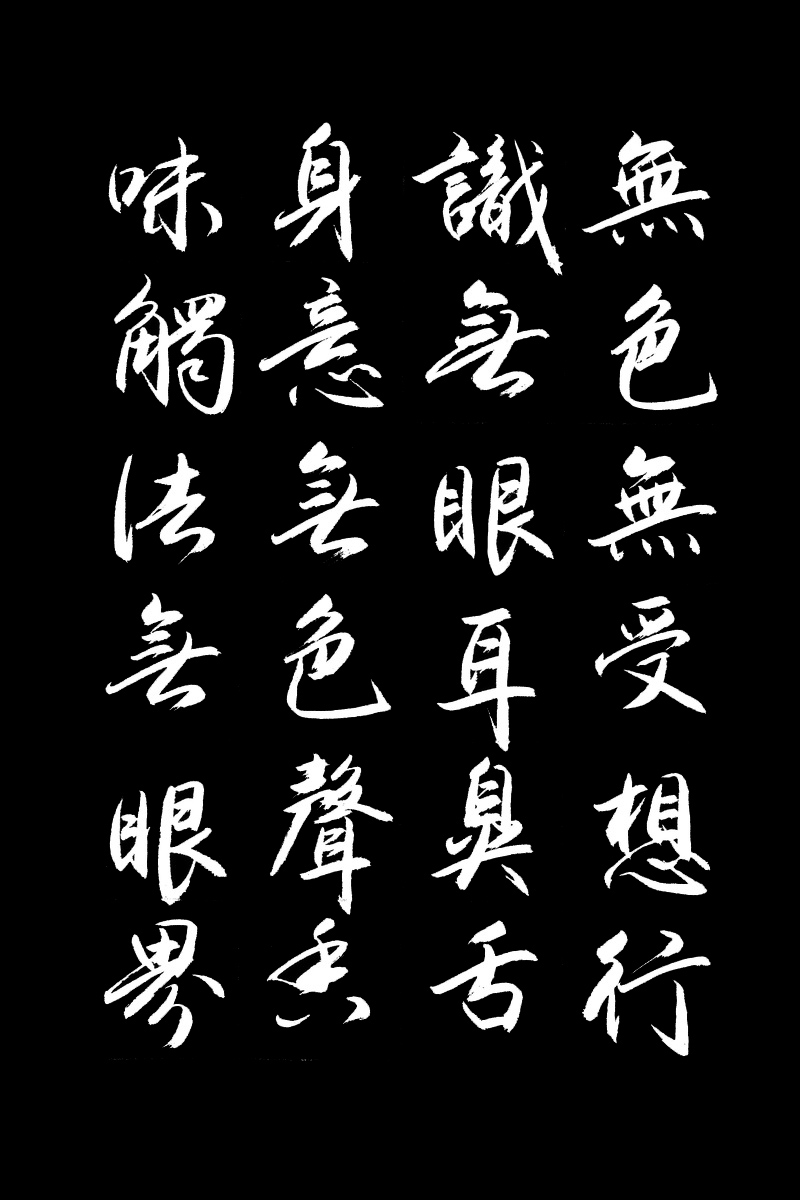 無色無受想行
識無眼耳鼻舌
身意無色聲香
味觸法無眼界